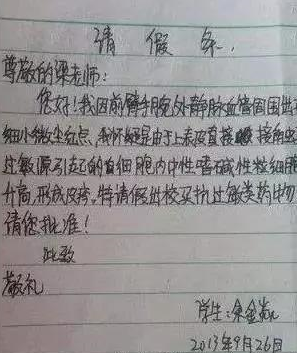 请假条
尊敬的梁老师:
您好!我因前臂手腕处静脉血管周围出
细小微尘红点,我怀疑是由于上表皮直接接触
过敏源引起的血细胞内中性嗜碱性粒细胞
升高,形成皮疹,特请假出校买抗过敏类药物
请您批准!
此致
敬礼
学生:余金
2013年9月26日